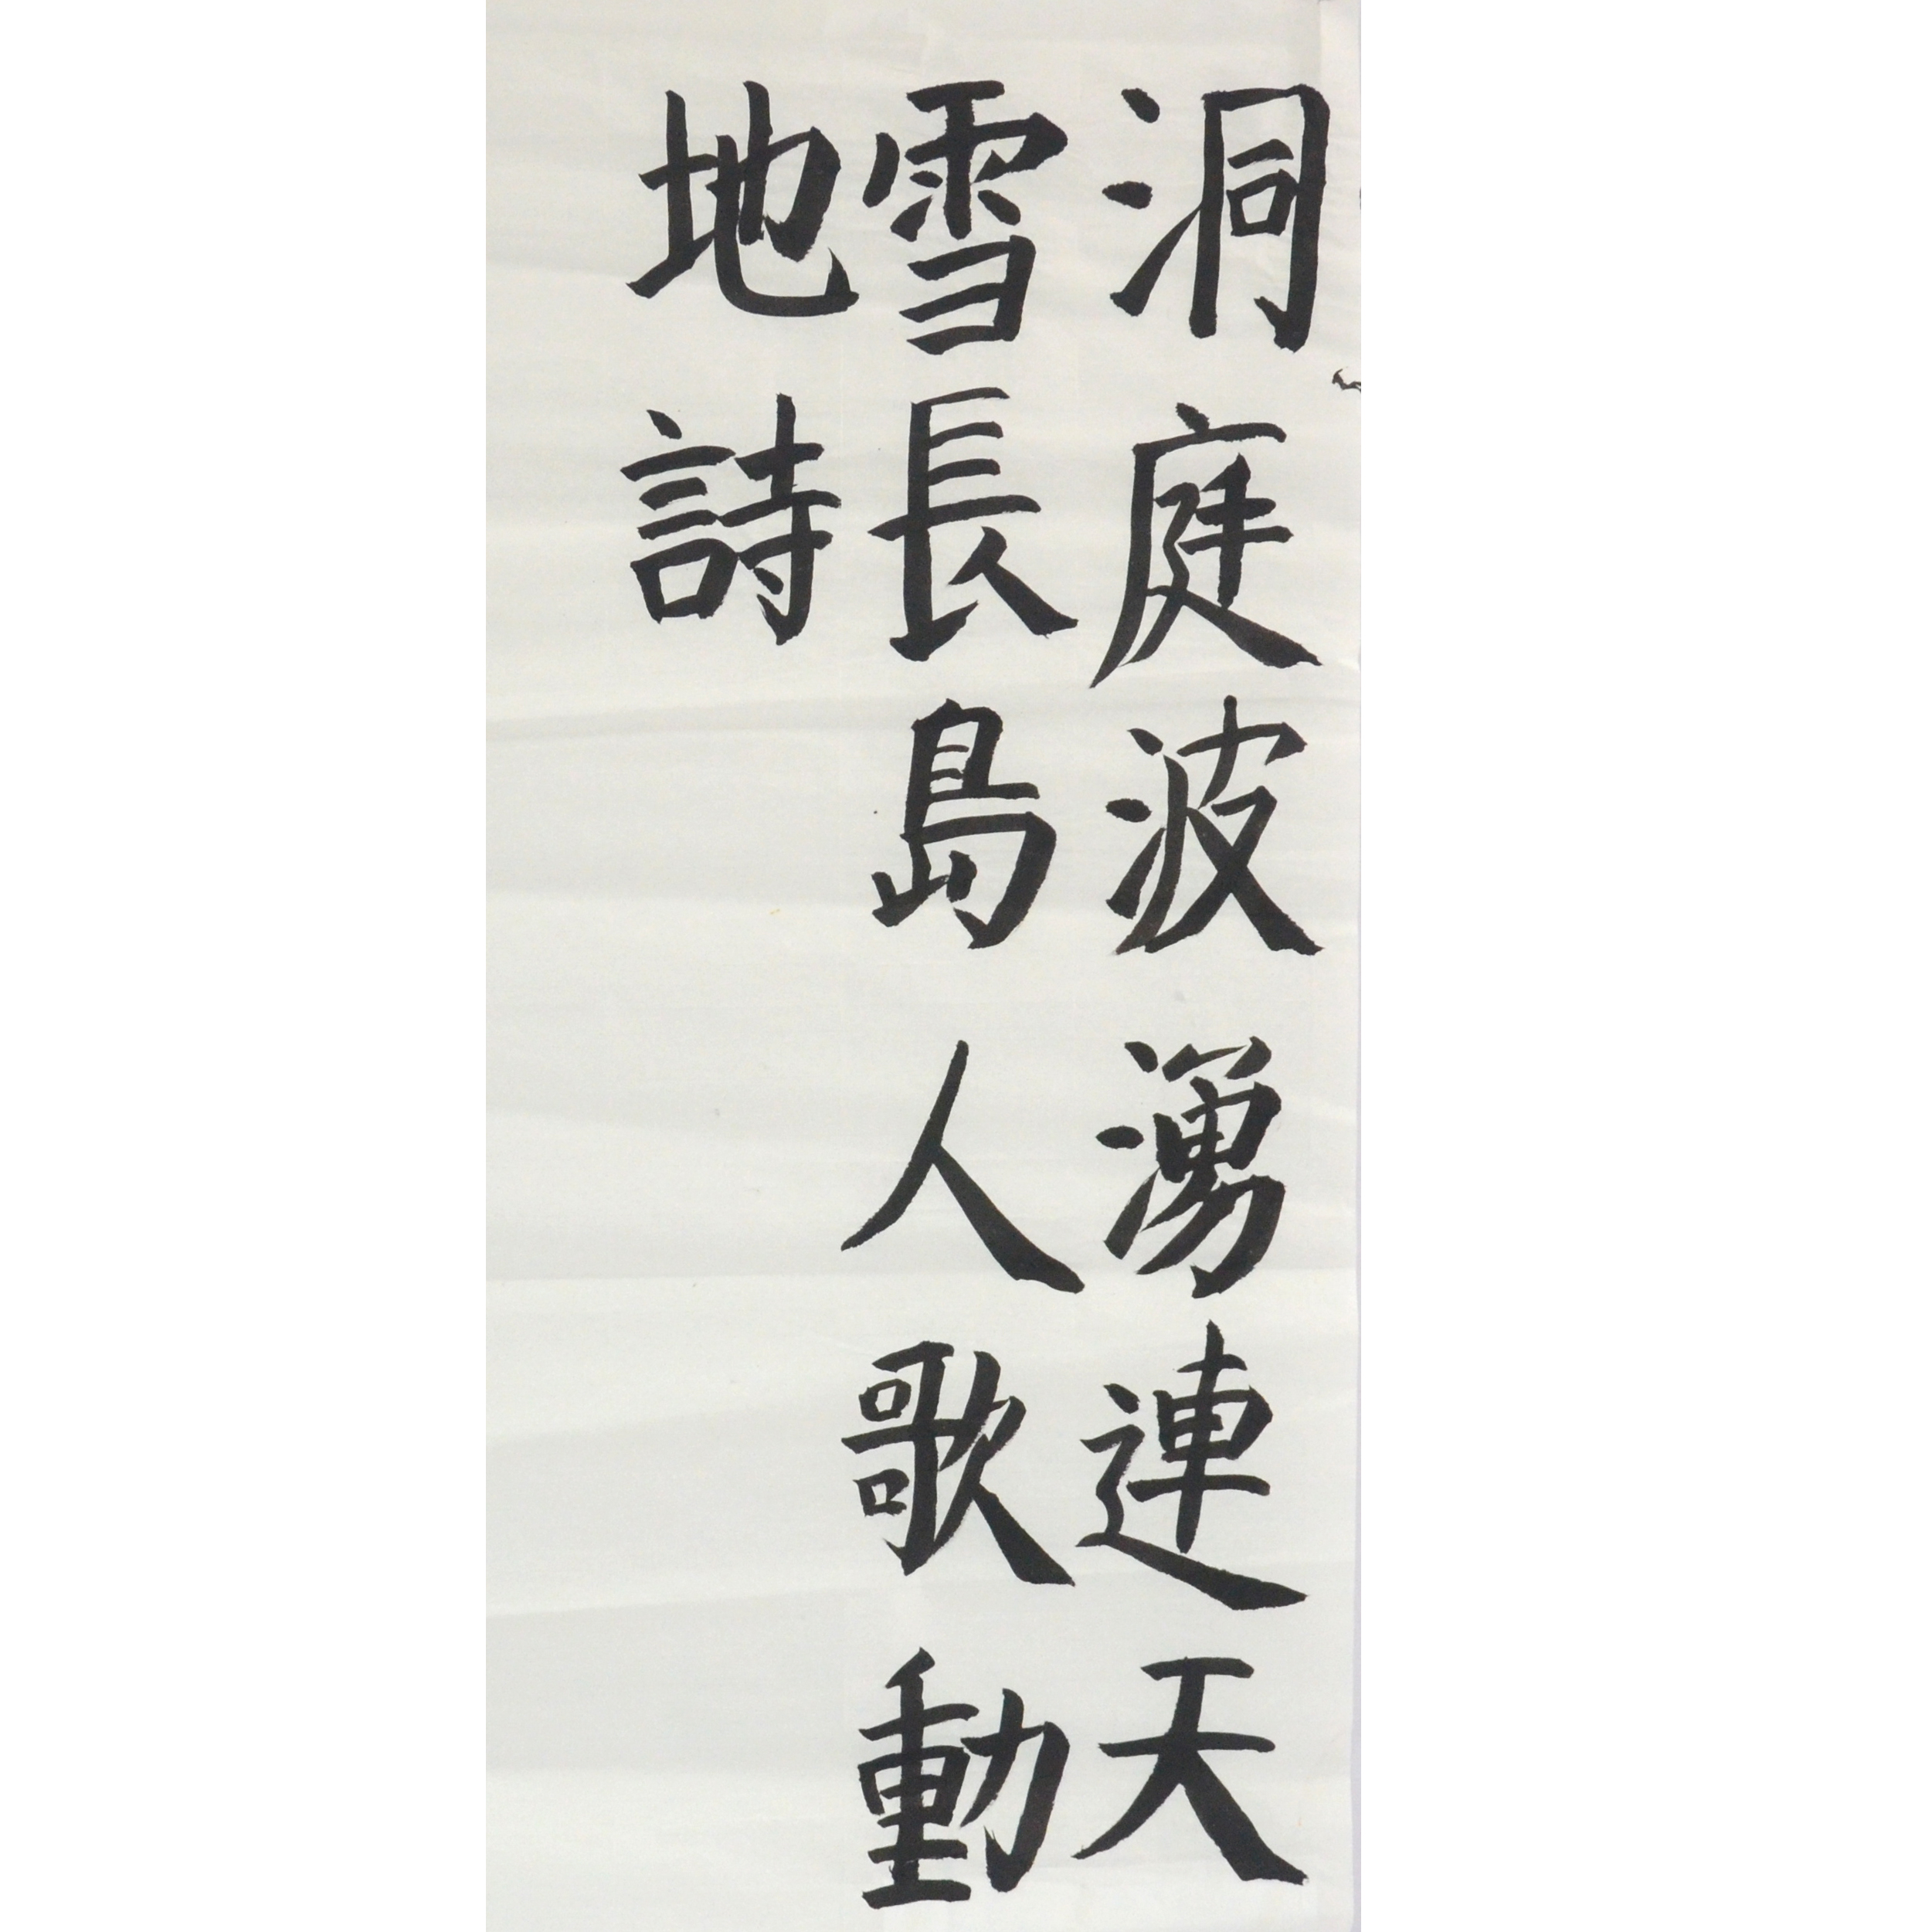 洞庭波湧連天
雪長島人歌動
地詩